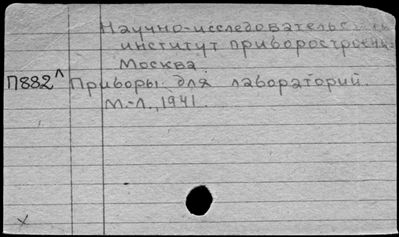 Научно-исследовательс
институт приборостроени
Москва.
П882^Л Приборы для лабораторий.
М.-Л., 1941.
х